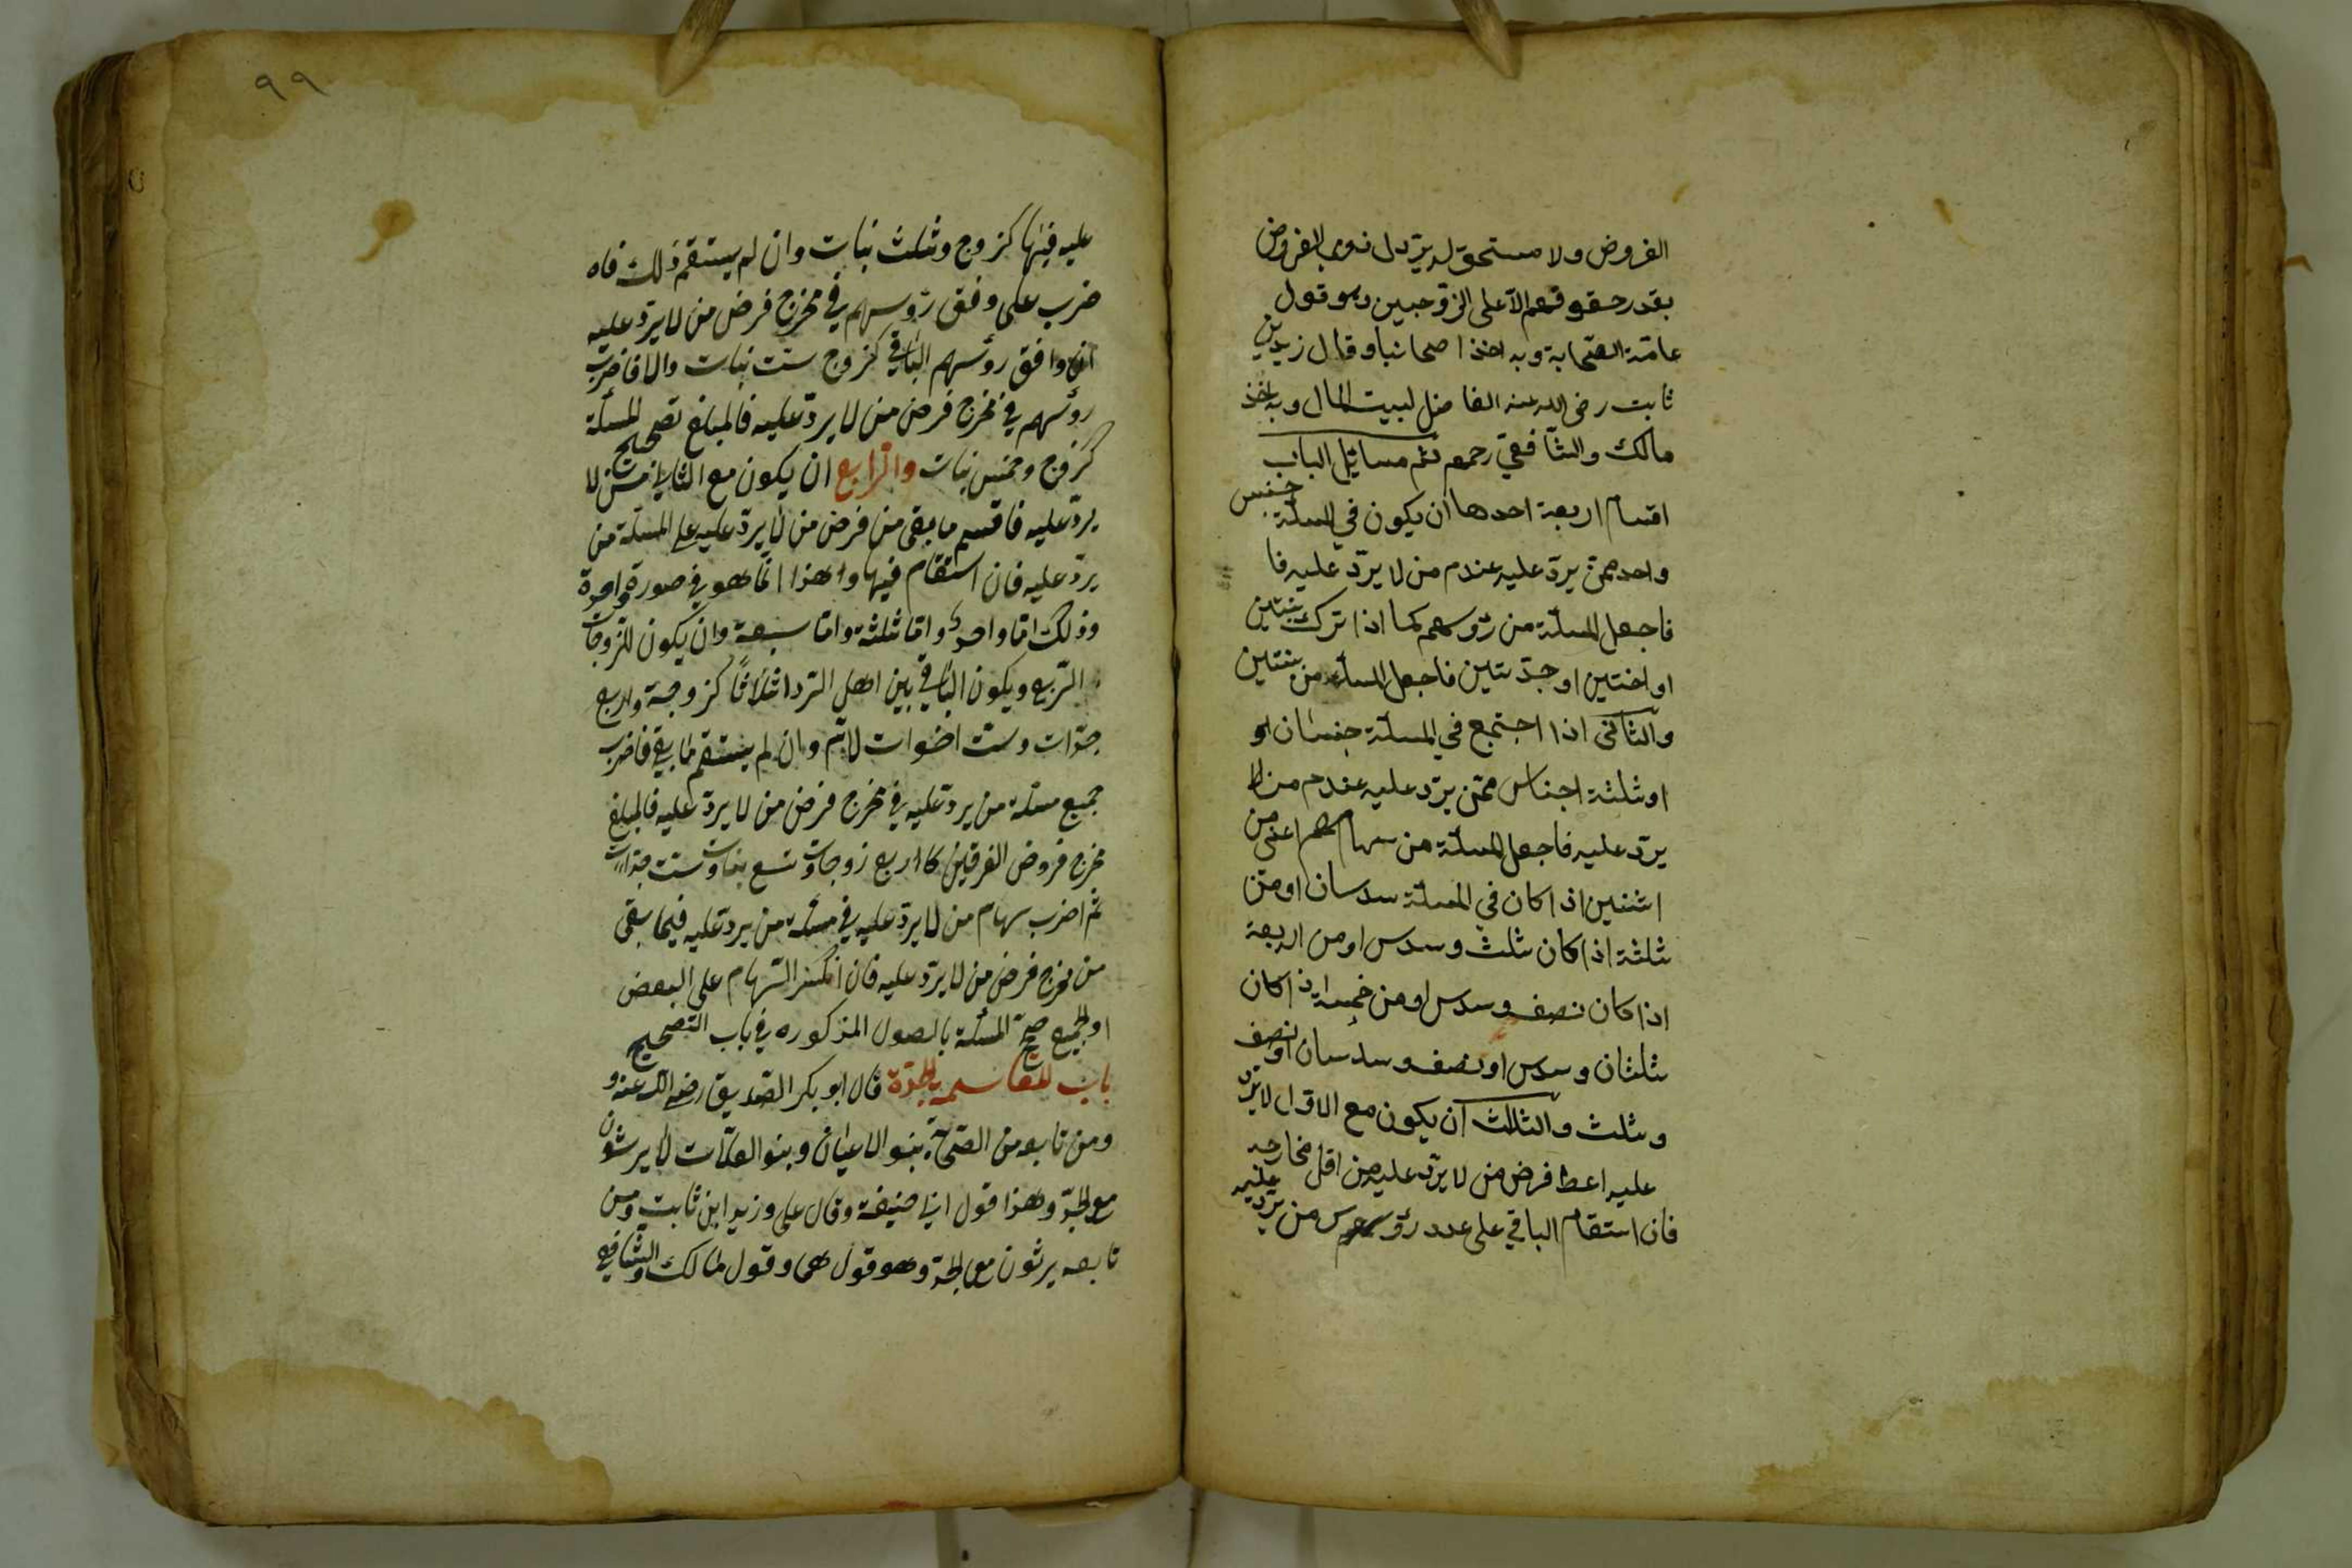 الفروض ولا مستحق له يرد الى ذوى الفروض
بقدر حقوقهم الا على الزوجين وهو قول
عامة الصحابة وبه اخذ اصحابنا وقال زيد بن
ثابت رضى الله عنه الفاضل لبيت المال وبه اخذ
مالك والشافعي رحمهم ثم مسائل الباب
اقسام اربعة احدها ان يكون في المسئلة جنس
واحد ممن يرد عليه عند عدم من لا يرد عليه فا
فاجعل المسئلة من رؤسهم كما اذا ترك بنتين
او اختين او جدتين فاجعل المسئلة من بنتين
والثاني اذا اجتمع في المسئلة جنسان او
او ثلثة اجناس ممن يرد عليه عند عدم من لا
يرد عليه فاجعل المسئلة من سهامهم اعني من
اثنين اذا كان في المسئلة سدسان او من
ثلثة اذا كان ثلث وسدس او من اربعة
اذا كان نصف وسدس او من خمسة اذا كان
ثلثان وسدس او نصف وسدسان او نصف
وثلث والثالث ان يكون مع الاول لا يرد
عليه اعط فرض من لا يرد عليه من اقل مخارجه
فان استقام الباقي على عدد رؤسهم من يرد عليه
٩٩
عليه فبها كزوج وثلث بنات وان لم يستقم ذلك فاه
ضرب على وفق رؤسهم في مخرج فرض من لا يرد عليه
ان وافق رؤسهم الباقي كزوج ست بنات والا فاضرب
رؤسهم في مخرج فرض من لا يرد عليه فالمبلغ تصحيح المسئلة
كزوج وخمس بنات والرابع ان يكون مع الثاني من لا
يرد عليه فاقسم ما بقى من فرض من لا يرد عليه على المسئلة من
يرد عليه فان استقام فبها وهذا انما هو في صورة واحدة
وذلك اما واحد واما ثلثة واما سبعة وان يكون للزوجات
الربع ويكون الباقي بين اهل الرد اثلاثا كزوجة واربع
جدات وست اخوات لام وان لم يستقم ما بقي فاضرب
جميع مسئلة من يرد عليه في مخرج فرض من لا يرد عليه فالمبلغ
مخرج فروض الفرقين كاربع زوجات وتسع بنات وست جدات
ثم اضرب سهام من لا يرد عليه في مسئلة من يرد عليه فيما بقى
من مخرج فرض من لا يرد عليه فان انكسر السهام على البعض
او الجميع صحح المسئلة بالصول المذكوره في باب التصحيح
باب المقاسمه بالجدة قال ابو بكر الصديق رضى الله عنه و
ومن تابعه من الصحابة بنو الاعيان وبنو العلات لا يرثون
مع الجد وهذا قول ابي حنيفة وقال على وزيد ابن ثابت ومن
تابعه يرثون مع الجد وهو قولهما وقول مالك والشافعي